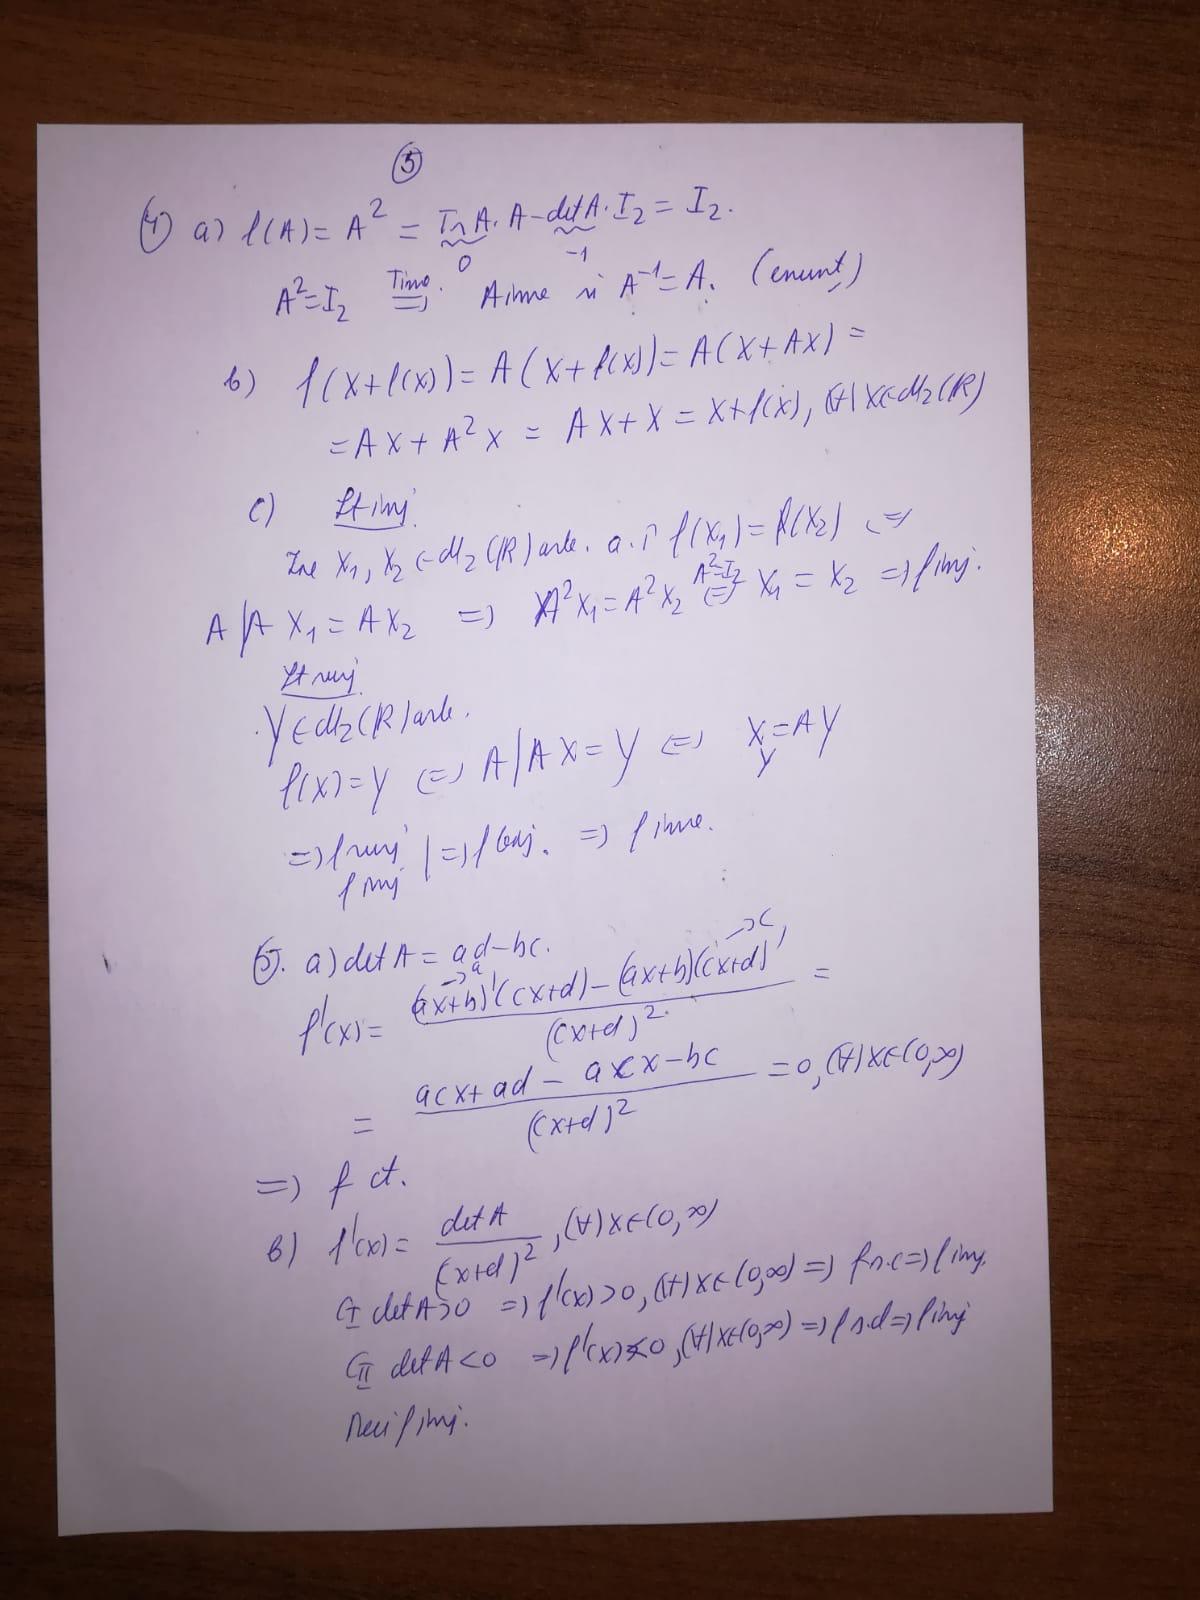 ⑤
4) a) f(A) = A² = Tr A · A - det A · I₂ = I₂.
0 -1
A² = I₂ ⇒ A inv și A⁻¹ = A. (enunț)
b) f(X+f(X)) = A(X+f(X)) = A(X+AX) =
= AX + A²X = AX + X = X + f(X), (∀) X ∈ M₂(ℝ)
c) St inj
Fie X₁, X₂ ∈ M₂(ℝ) arb. a.î f(X₁) = f(X₂) ⇔
A | A X₁ = A X₂ ⇒ A²X₁ = A²X₂ ⇔ (A²=I₂) X₁ = X₂ ⇒ f inj.
St surj
Y ∈ M₂(ℝ) arb.
f(X) = Y ⇔ A | AX = Y ⇔ X_Y = AY
⇒ f surj | ⇒ f bij. ⇒ f inv.
f inj
5. a) det A = ad - bc.
f'(x) = ((ax+b)'(cx+d) - (ax+b)(cx+d)')/(cx+d)² =
= (acx + ad - acx - bc)/(cx+d)² = 0, (∀) x ∈ (0,∞)
⇒ f ct.
b) f'(x) = det A/(cx+d)², (∀) x ∈ (0,∞)
C_I det A > 0 ⇒ f'(x) > 0, (∀) x ∈ (0,∞) ⇒ f s.c ⇒ f inj.
C_II det A < 0 ⇒ f'(x) < 0, (∀) x ∈ (0,∞) ⇒ f s.d ⇒ f inj
Deci f inj.